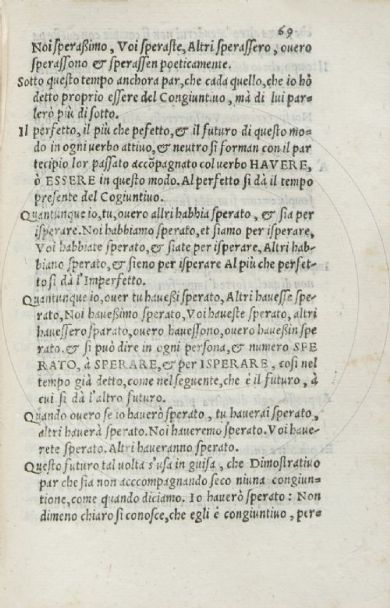 69
Noi speraßimo, Voi speraste, Altri sperassero, ouero
sperassono & sperassen poeticamente.
Sotto questo tempo anchora par, che cada quello, che io hò
detto proprio essere del Congiuntiuo, mà di lui par-
lerò più di sotto.
Il perfetto, il più che pefetto, & il futuro di questo mo-
do in ogni uerbo attiuo, & neutro si forman con il par
tecipio lor passato accõpagnato col uerbo HAVERE,
ò ESSERE in questo modo. Al perfetto si dà il tempo
presente del Cogiuntiuo.
Quantunque io, tu, ouero allri habbia sperato, & sia per
isperare. Noi habbiamo sperato, et siamo per isperare,
Voi habbiate sperato, & siate per isperare, Altri hab-
biano sperato, & sieno per isperare Al più che perfet-
to si dà l'Imperfetto.
Quantunque io, ouer tu haueßi sperato, Altri hauesse spe-
rato, Noi haueßimo sperato, Voi haueste sperato, altri
hauessero sparato, ouero hauessono, ouero haueßin spe
rato. & si può dire in ogni persona, & numero SPE
RATO, à SPERARE, & per ISPERARE, così nel
tempo già detto, come nel seguente, che è il futuro, à
cui si dà l'altro futuro.
Quando ouero se io hauerò sperato, tu hauerai sperato,
altri hauerà sperato. Noi haueremo sperato. Voi haue-
rete sperato. Altri haueranno sperato.
Questo futuro tal uolta s'usa in guisa, che Dimostratiuo
par che sia non acccompagnando seco niuna congiun-
tione, come quando diciamo. Io hauerò sperato: Non
dimeno chiaro si conosce, che egli è congiuntiuo, per-